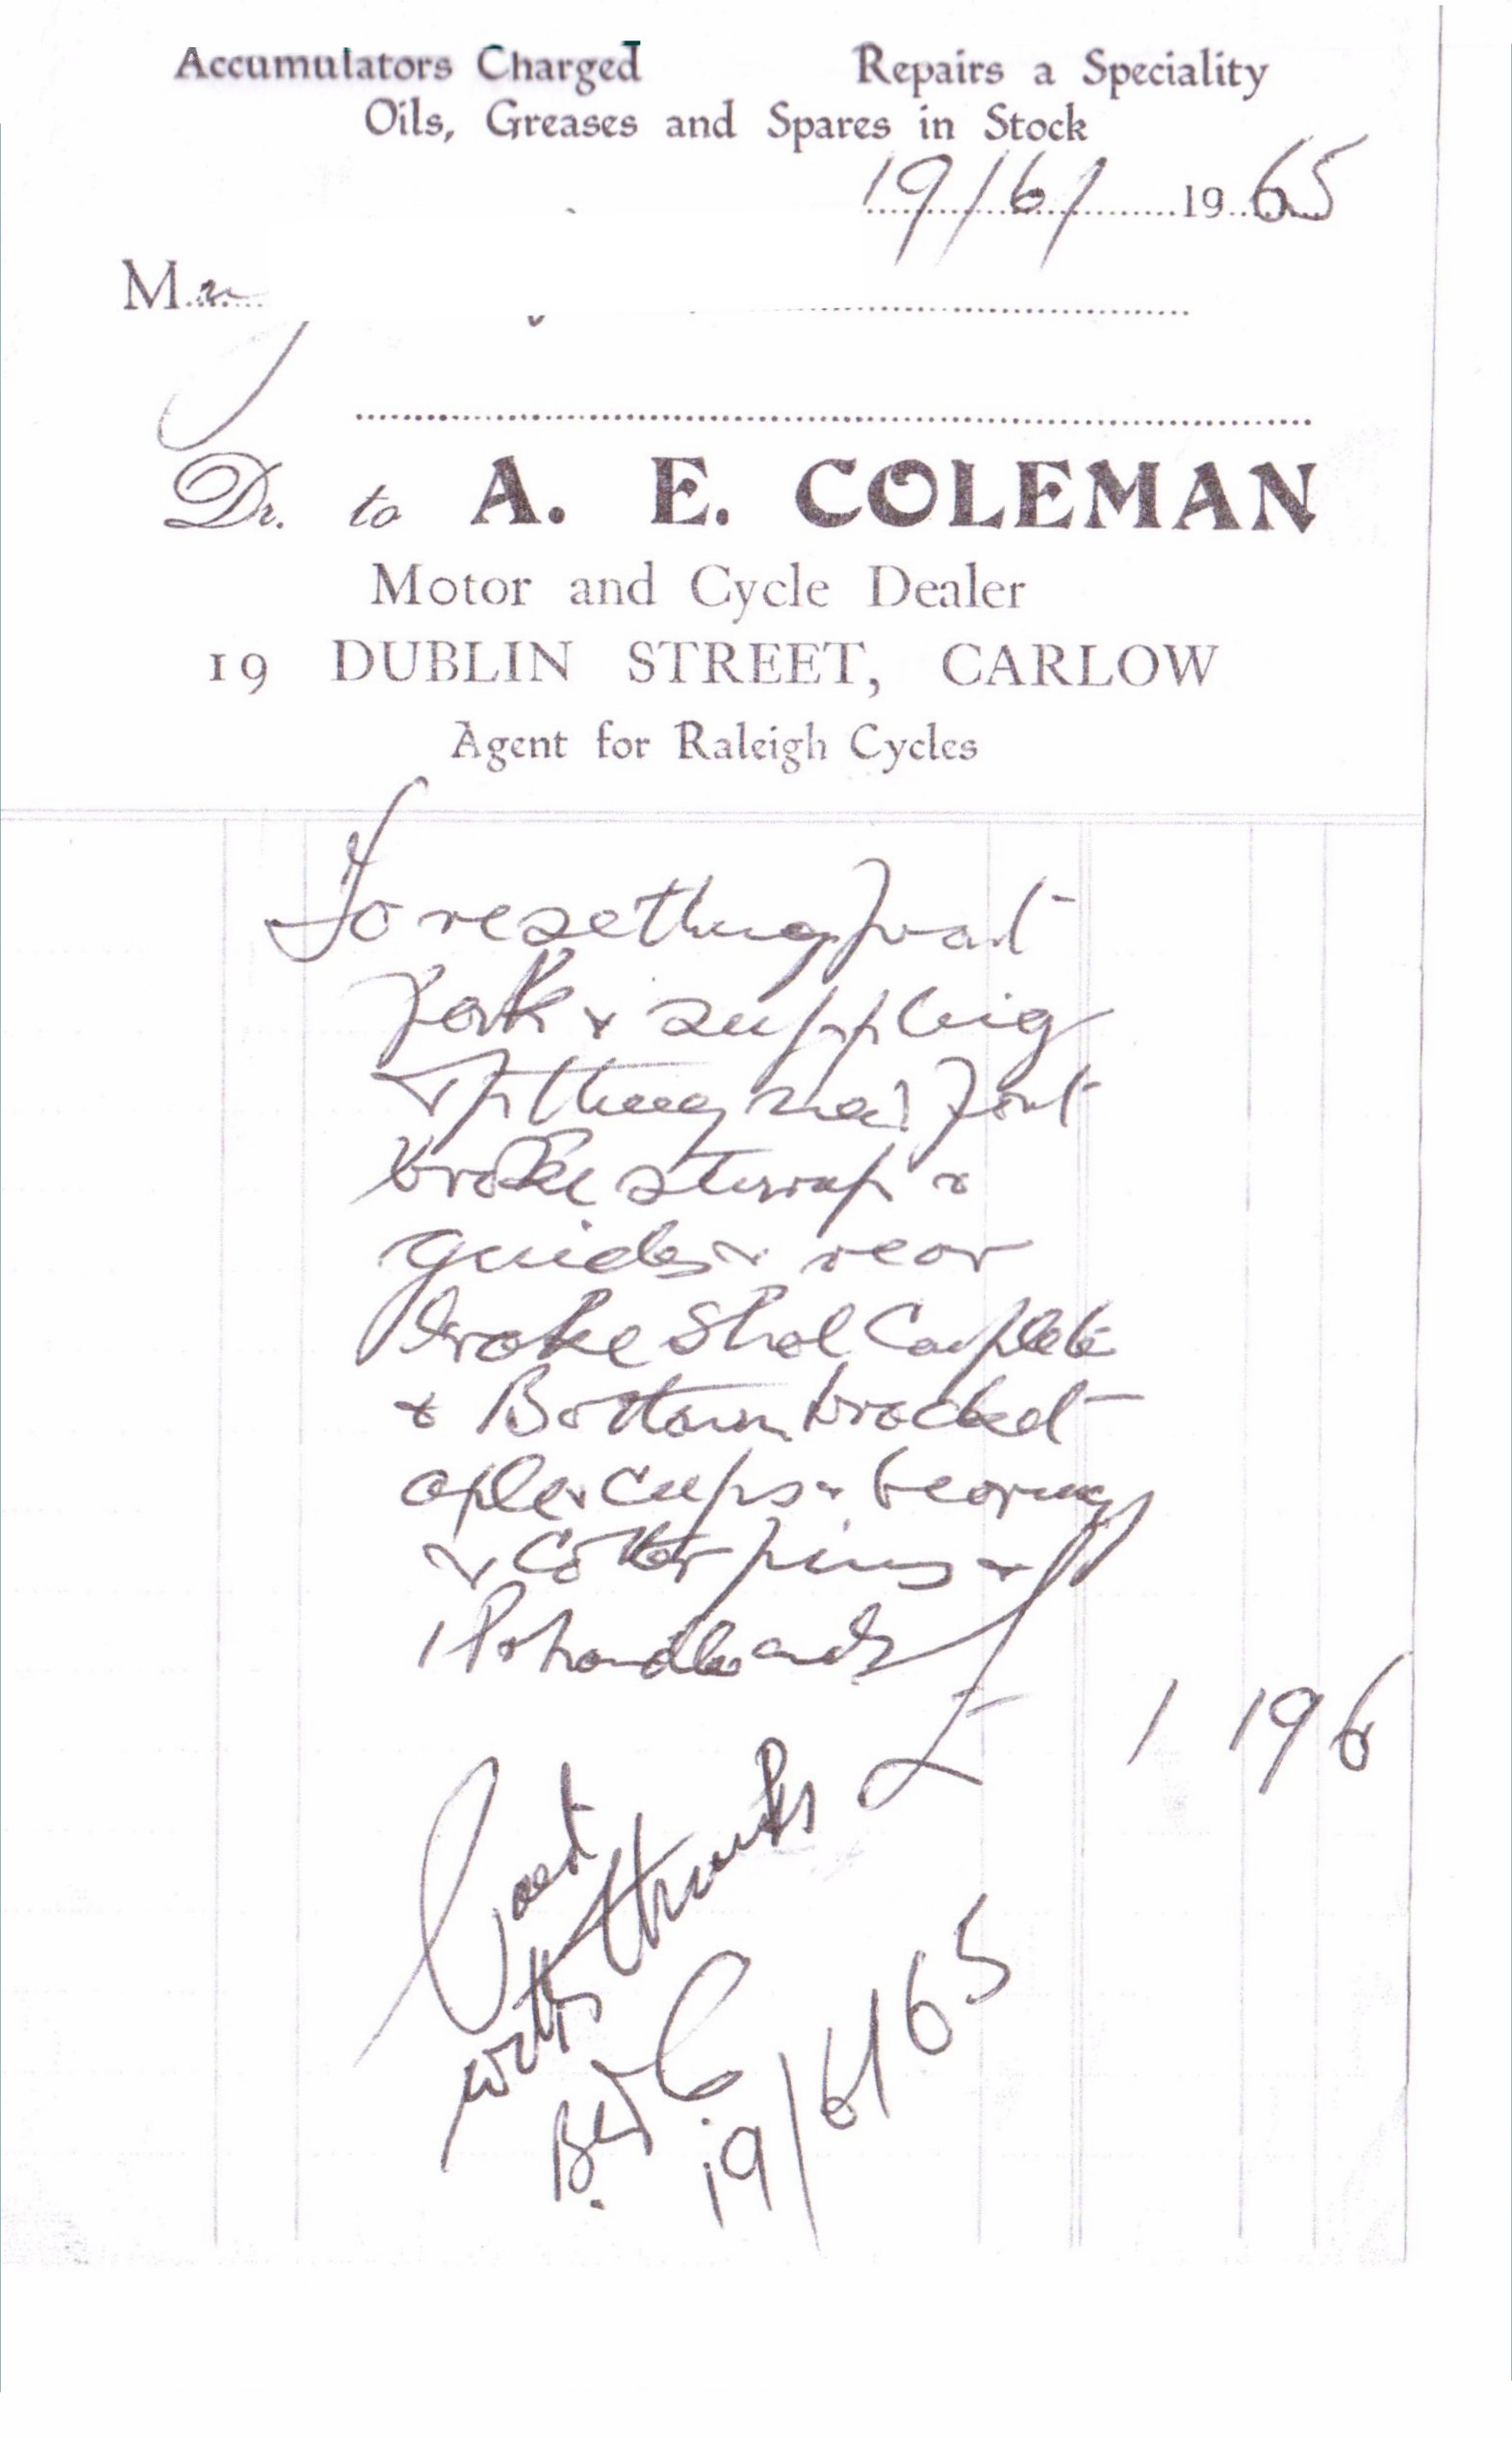 Accumulators Charged Repairs a Speciality
Oils, Greases and Spares in Stock
19/6/ 1965
Mr
Dr. to A. E. COLEMAN
Motor and Cycle Dealer
19 DUBLIN STREET, CARLOW
Agent for Raleigh Cycles
To resetting front
fork & supplying
& fitting new front
brake stirrup &
guides & rear
brake Complete
& Bottom bracket
axle cups & bearings
& Cotter pins &
1 Pr
£ 1 19 6
with thanks
19/6/65